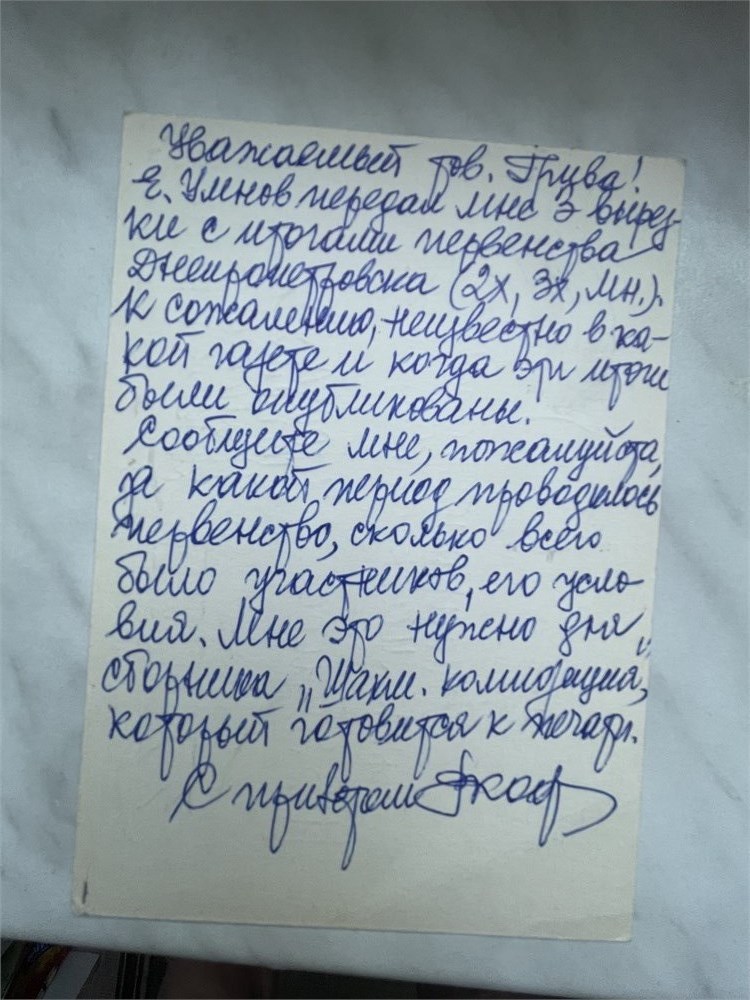 Уважаемый тов. Грива!
Е. Умнов передал мне 3 вырез-
ки с итогами первенства
Днепропетровска (2х, 3х, мн.).
К сожалению, неизвестно в ка-
кой газете и когда эти итоги
были опубликованы.
Сообщите мне, пожалуйста,
за какой период проводилось
первенство, сколько всего
было участников, его усло-
вия. Мне это нужно для
сборника „Шахм. композиция",
который готовится к печати.
С приветом